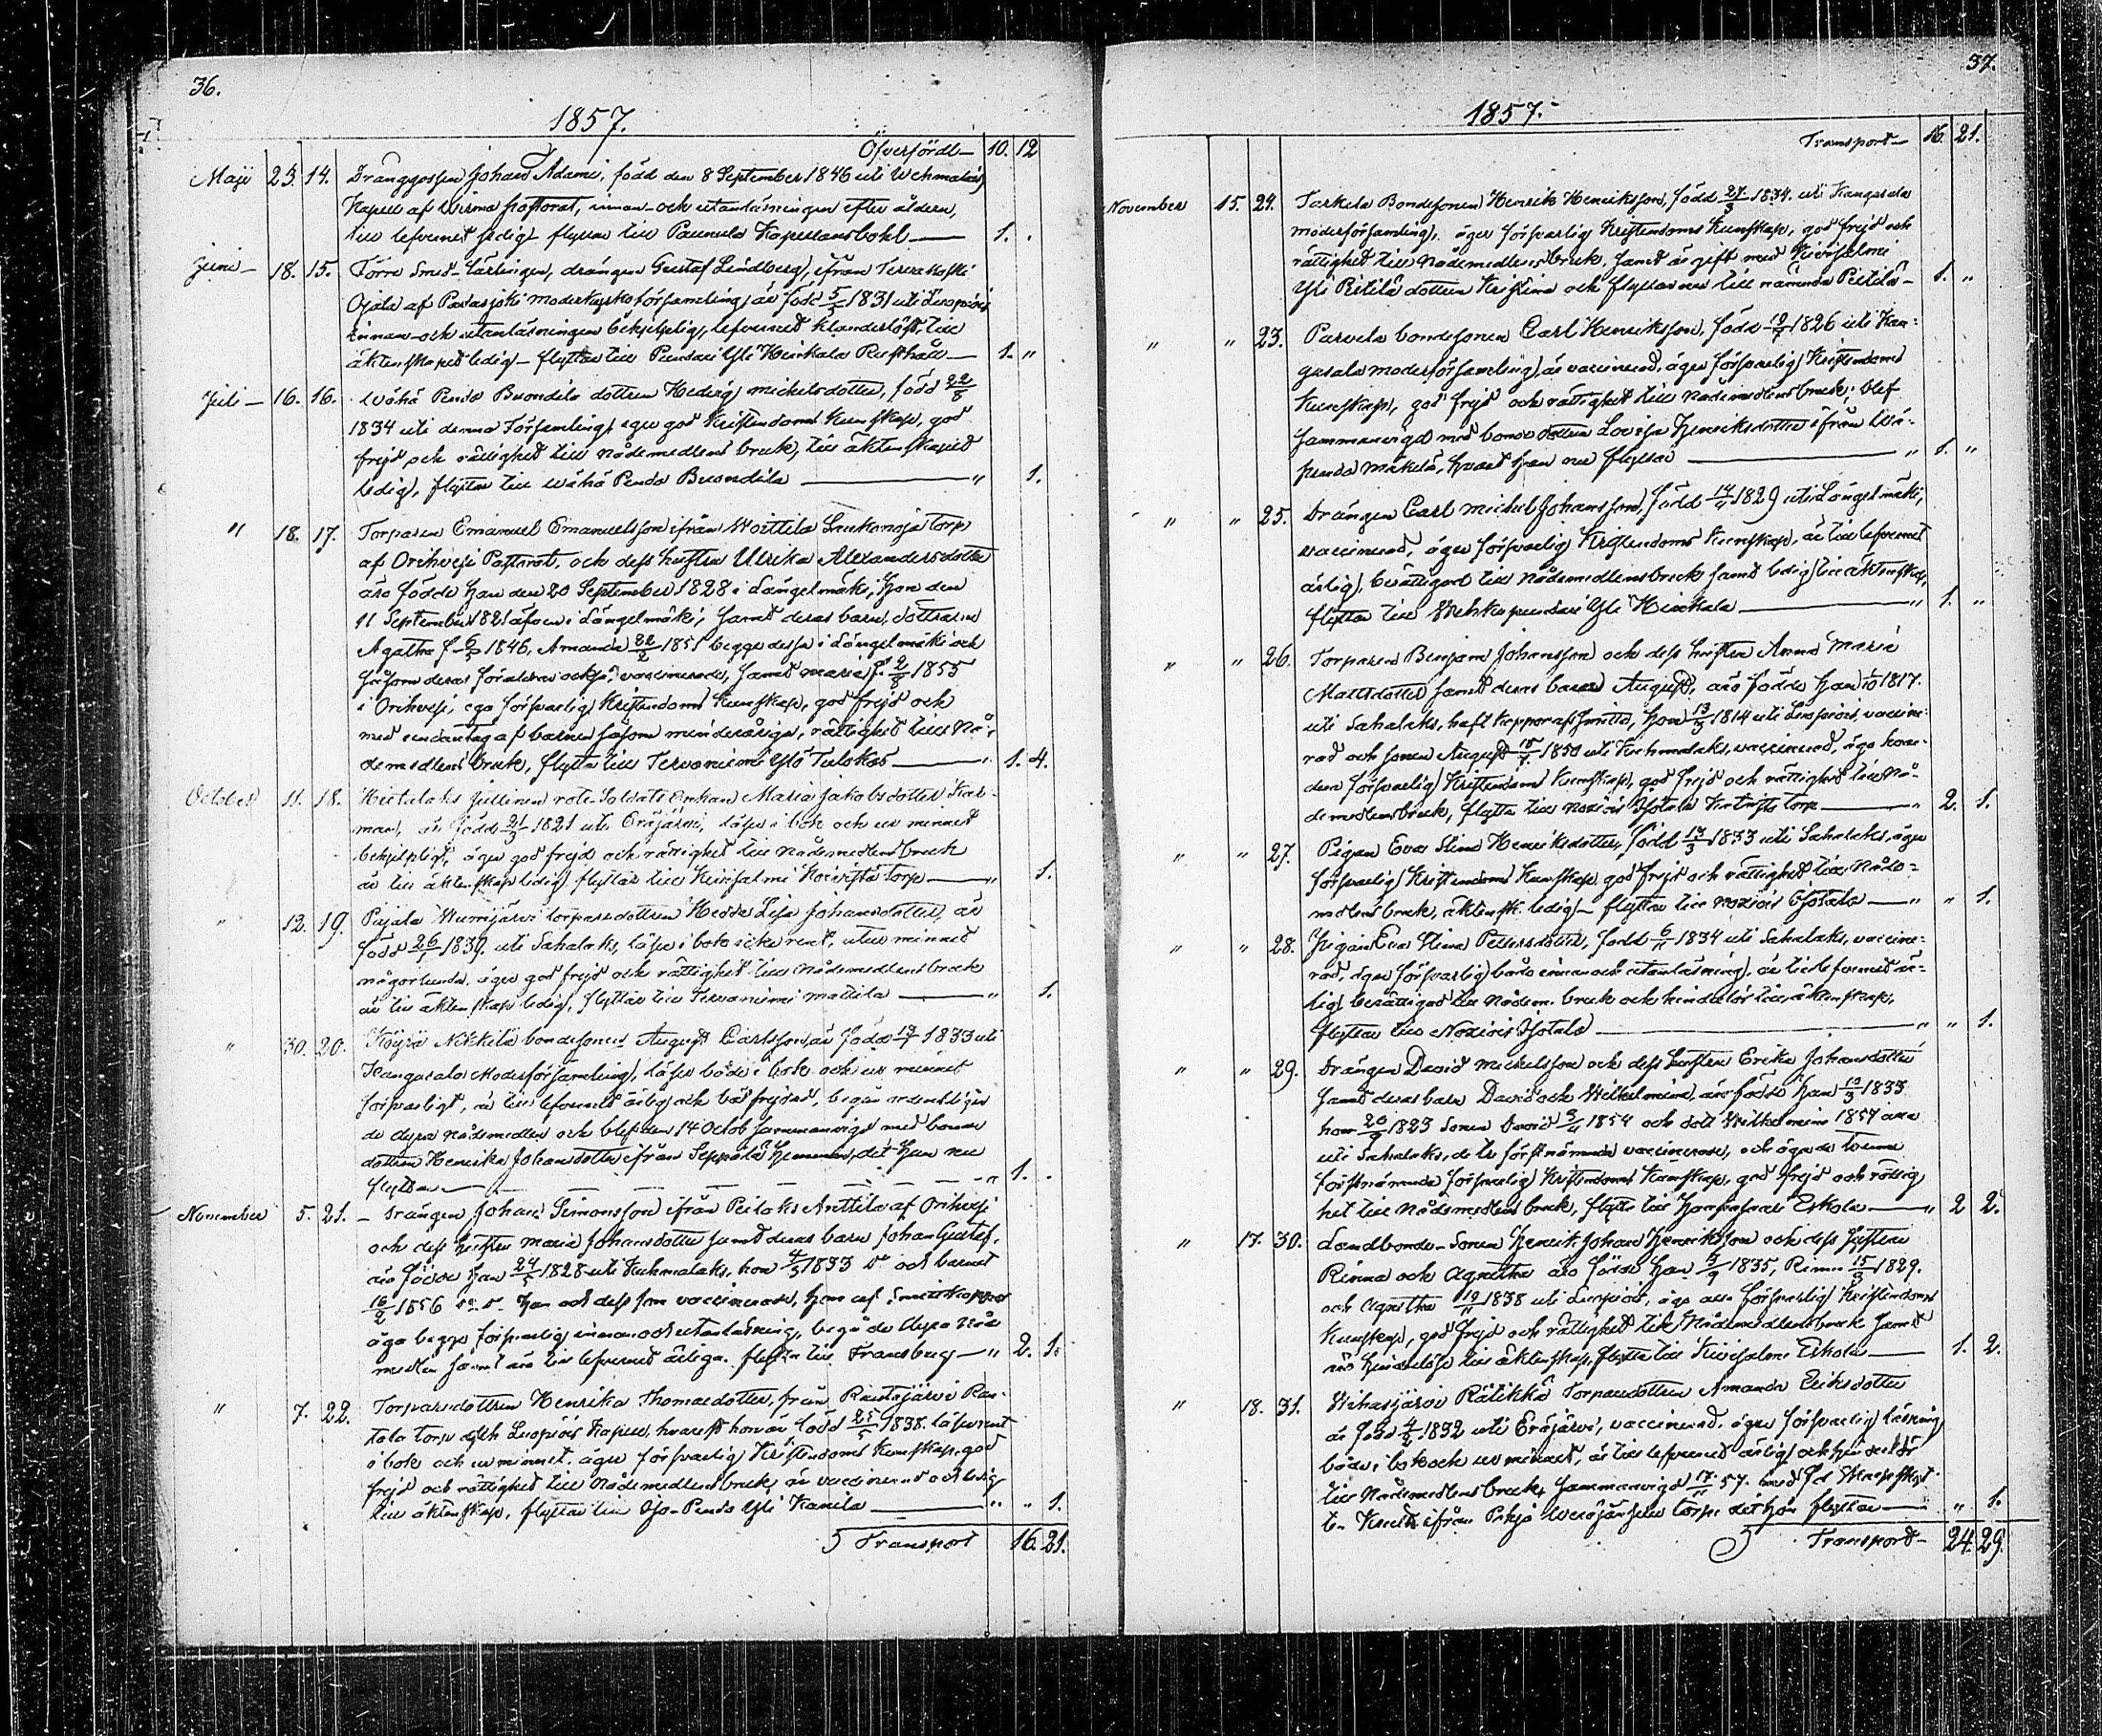 36.
1857.
Öfverfördt — 10. 12
Maji 23. 14. Dränggossen Johan Adami, född den 8 September 1846 uti Wehmalais
Kapell af Wirmo Pastorat, innan- och utanläsningen efter åldern,
till lefvernet sedig flyttar till Pannula Kapellansbohl — 1. .
Juni — 18. 15. Förre Smed-Lärlingen, drängen Gustaf Lindberg, ifrån
Ojala af Padasjoki moderkyrkoförsamling är född 5/5 1831 uti Luopiois
innan- och utanläsningen behjelpelig, lefvernet klanderlöst, till
äktenskapet ledig — flyttar till Puntari Yli Hinkala Rusthåll — 1. "
Juli — 16. 16. Wähä Pendo Buondila dottren Hedvig Michelsdotter, född 22/8
1834 uti denna Församling, eger god Kristendoms Kunskap, god
frejd och rättighet till nådemedlens bruk, till äktenskapet
ledig, flyttar till Wähä Pendo Buondila — " 1.
" 18. 17. Torparen Emanuel Emanuelsson ifrån Woittila Leukonoja torp
af Orihvesi Pastorat, och dess hustru Ulrika Alexandersdotter
äro födde han den 20 September 1828 i Längelmäki, hon den
11 September 1821 äfven i Längelmäki, samt deras barn, döttrarne
Agatha f. 6/5 1846, Amanda 22/2 1851 begge dessa i Längelmäki och
såsom deras föräldrar också vaccinerade, samt Maria f. 2/8 1855
i Orihvesi, ega försvarlig Kristendoms Kunskap, god frejd och
med undantag af barnen såsom minderåriga, rättighet till Nå-
demedlens bruk, flytta till Tervaniemi Ylö Tulokas — " 1. 4.
October 11. 18. Kuulaks Jullinen rote Soldats Enkan Maria Jakobsdotter Kar-
man, är född 21/3 1821 uti Eräjärvi, läser i bok och ur minnet
behjelpligt, äger god frejd och rättighet till nådemedlens bruk
är till äktenskap ledig flyttar till Kuisalmi Koivisto torp — " 1.
" 12. 19. Pajala Wurrijärvi torparedottren Hedda Lisa Johansdotter, är
född 26/1 1839 uti Sahalaks, läser i bok icke rent, utur minnet
någorlunda, äger god frejd och rättighet till nådemedlens bruk
är till äktenskap ledig, flyttar till Tervaniemi Mattila — " 1.
" 30. 20. Köyrä Nikkilä bondesonen August Carlsson, är född 17/7 1833 uti
Kangasala Moderförsamling, läser både i bok och ur minnet
försvarligt, är till lefvernet ärlig och välfrejdad, begår ordentligen
de dyra nådemedlen och blef den 14 Octob. sammanvigd med bonde
dottren Henrika Johansdotter ifrån Seppälä hemman, dit han nu
flyttar — — — — " 1. .
November 5. 21. — Drängen Johan Simonsson ifrån Peilaks Anttila af Orihvesi
och dess hustru Maria Johansdotter samt deras barn Johan Gustaf,
äro födde han 24/5 1828 uti Kuhmalaks, hon 4/3 1833 d:o och barnet
16/2 1856 d:o d:o. Han och dess son vaccinerade, hon af Smittkoppor
äga begge försvarlig innan- och utanläsning, begå de dyra nåde
medlen samt äro till lefvernet ärliga. flytta till Fransberg — " 2. 1.
" 7. 22. Torparedottren Henrika Thomasdotter, från Rautajärvi Ran-
tala torp och Luopiois Kapell, hvarest hon är född 25/5 1838. läser rent
i bok och ur minnet. äger försvarlig Kristendoms Kunskap, god
frejd och rättighet till Nådemedlens bruk, är vaccinerad och ledig
till äktenskap, flyttar till Iso-Pendo Yli Kamila — " " 1.
Transport 16. 21.
37.
1857.
Transport — 16. 21.
November 15. 24. Tarkela Bondesonen Henrik Henriksson, född 27/3 1834 uti Kangasala
moderförsamling, äger försvarlig Kristendoms Kunskap, god frejd och
rättighet till Nådemedlens bruk, samt är gift med Kuisalmi
Yli Pitilä dottren Kristina och flyttar nu till nämnda Pitilä — 1. "
" " 23. Parvela bondesonen Carl Henriksson, född 12/7 1826 uti Kan-
gasala moderförsamling, är vaccinerad, äger försvarlig Kristendoms
Kunskap, god frejd och rättighet till nådemedlens bruk, blef
sammanvigd med bonde dottren Lovisa Henriksdotter ifrån Wä-
Mäkelä, hvart han nu flyttar — " 1. "
" " 25. Drängen Carl Michel Johansson, född 14/4 1829 uti Längelmäki,
vaccinerad, äger försvarlig Kristendoms Kunskap, är till lefvernet
ärlig, berättigad till Nådemedlens bruk samt ledig till äktenskap,
flyttar till Yli Hinkala — " 1. "
" " 26. Torparen Benjam Johansson och dess hustru Anna Maria
Mattsdotter samt deras barn August, äro födde han 1/10 1817
uti Sahalaks, haft koppor af smitta, hon 13/3 1814 uti Luopiois, vaccine-
rad och sonen August 15/7 1850 uti Kuhmalaks, vaccinerad, äga
försvarlig Kristendoms Kunskap, god frejd och rättighet till Nå-
demedlens bruk, flytta till Noziois Isotalo torp — " 2. 1.
" " 27. Pigan Eva Stina Henriksdotter, född 13/3 1833 uti Sahalaks, äger
försvarlig Kristendoms Kunskap god frejd och rättighet till Nåde-
medlens bruk, äktensk. ledig — flyttar till Noziois Isotalo — " " 1.
" " 28. Pigan Eva Stina Pettersdotter, född 6/11 1834 uti Sahalaks, vaccine-
rad, äger försvarlig både innan och utanläsning, är till lefvernet är-
lig berättigad till Nådem. bruk och hinderlös till äktenskap,
flyttar till Noziois Isotalo — " " 1.
" " 29. Drängen David Michelsson och dess hustru Erika Johansdotter
samt deras barn David och Wilhelmina, äro födde han 13/3 1833
hon 20/9 1823 Sonen David 3/4 1854 och dott Wilhelmina 1857 alla
uti Sahalaks, de tre förstnämnda vaccinerade, och äga de tvenne
förstnämnda försvarlig Kristendoms Kunskap, god frejd och rättig-
het till Nådemedlens bruk, flytta till Eskola — " 2 2.
" 17. 30. Landbonde-Sonen Henrik Johan Henriksson och dess Systrar
Rinna och Agnetha äro födde han 5/9 1835, Rinna 15/3 1829.
och Agnetha 19/11 1838 uti Luopiois, äga alla försvarlig Kristendoms
Kunskap, god frejd och rättighet till Nådemedlens bruk samt
äro hinderlösa till äktenskap, flytta till Kuisalmi Eskola — 1. 2.
" 18. 31. Wihasjärvi Rätikkä Torparedottren Amanda Eriksdotter
är född 4/2 1832 uti Eräjärvi, vaccinerad, äger försvarlig läsning
både i bok och ur minnet, är till lefvernet ärlig och hinderlös
till Nådemedlens bruk, sammanvigd 17/11 57. med
ifrån torp dit hon flyttar — " 1.
Transport — 24. 29.